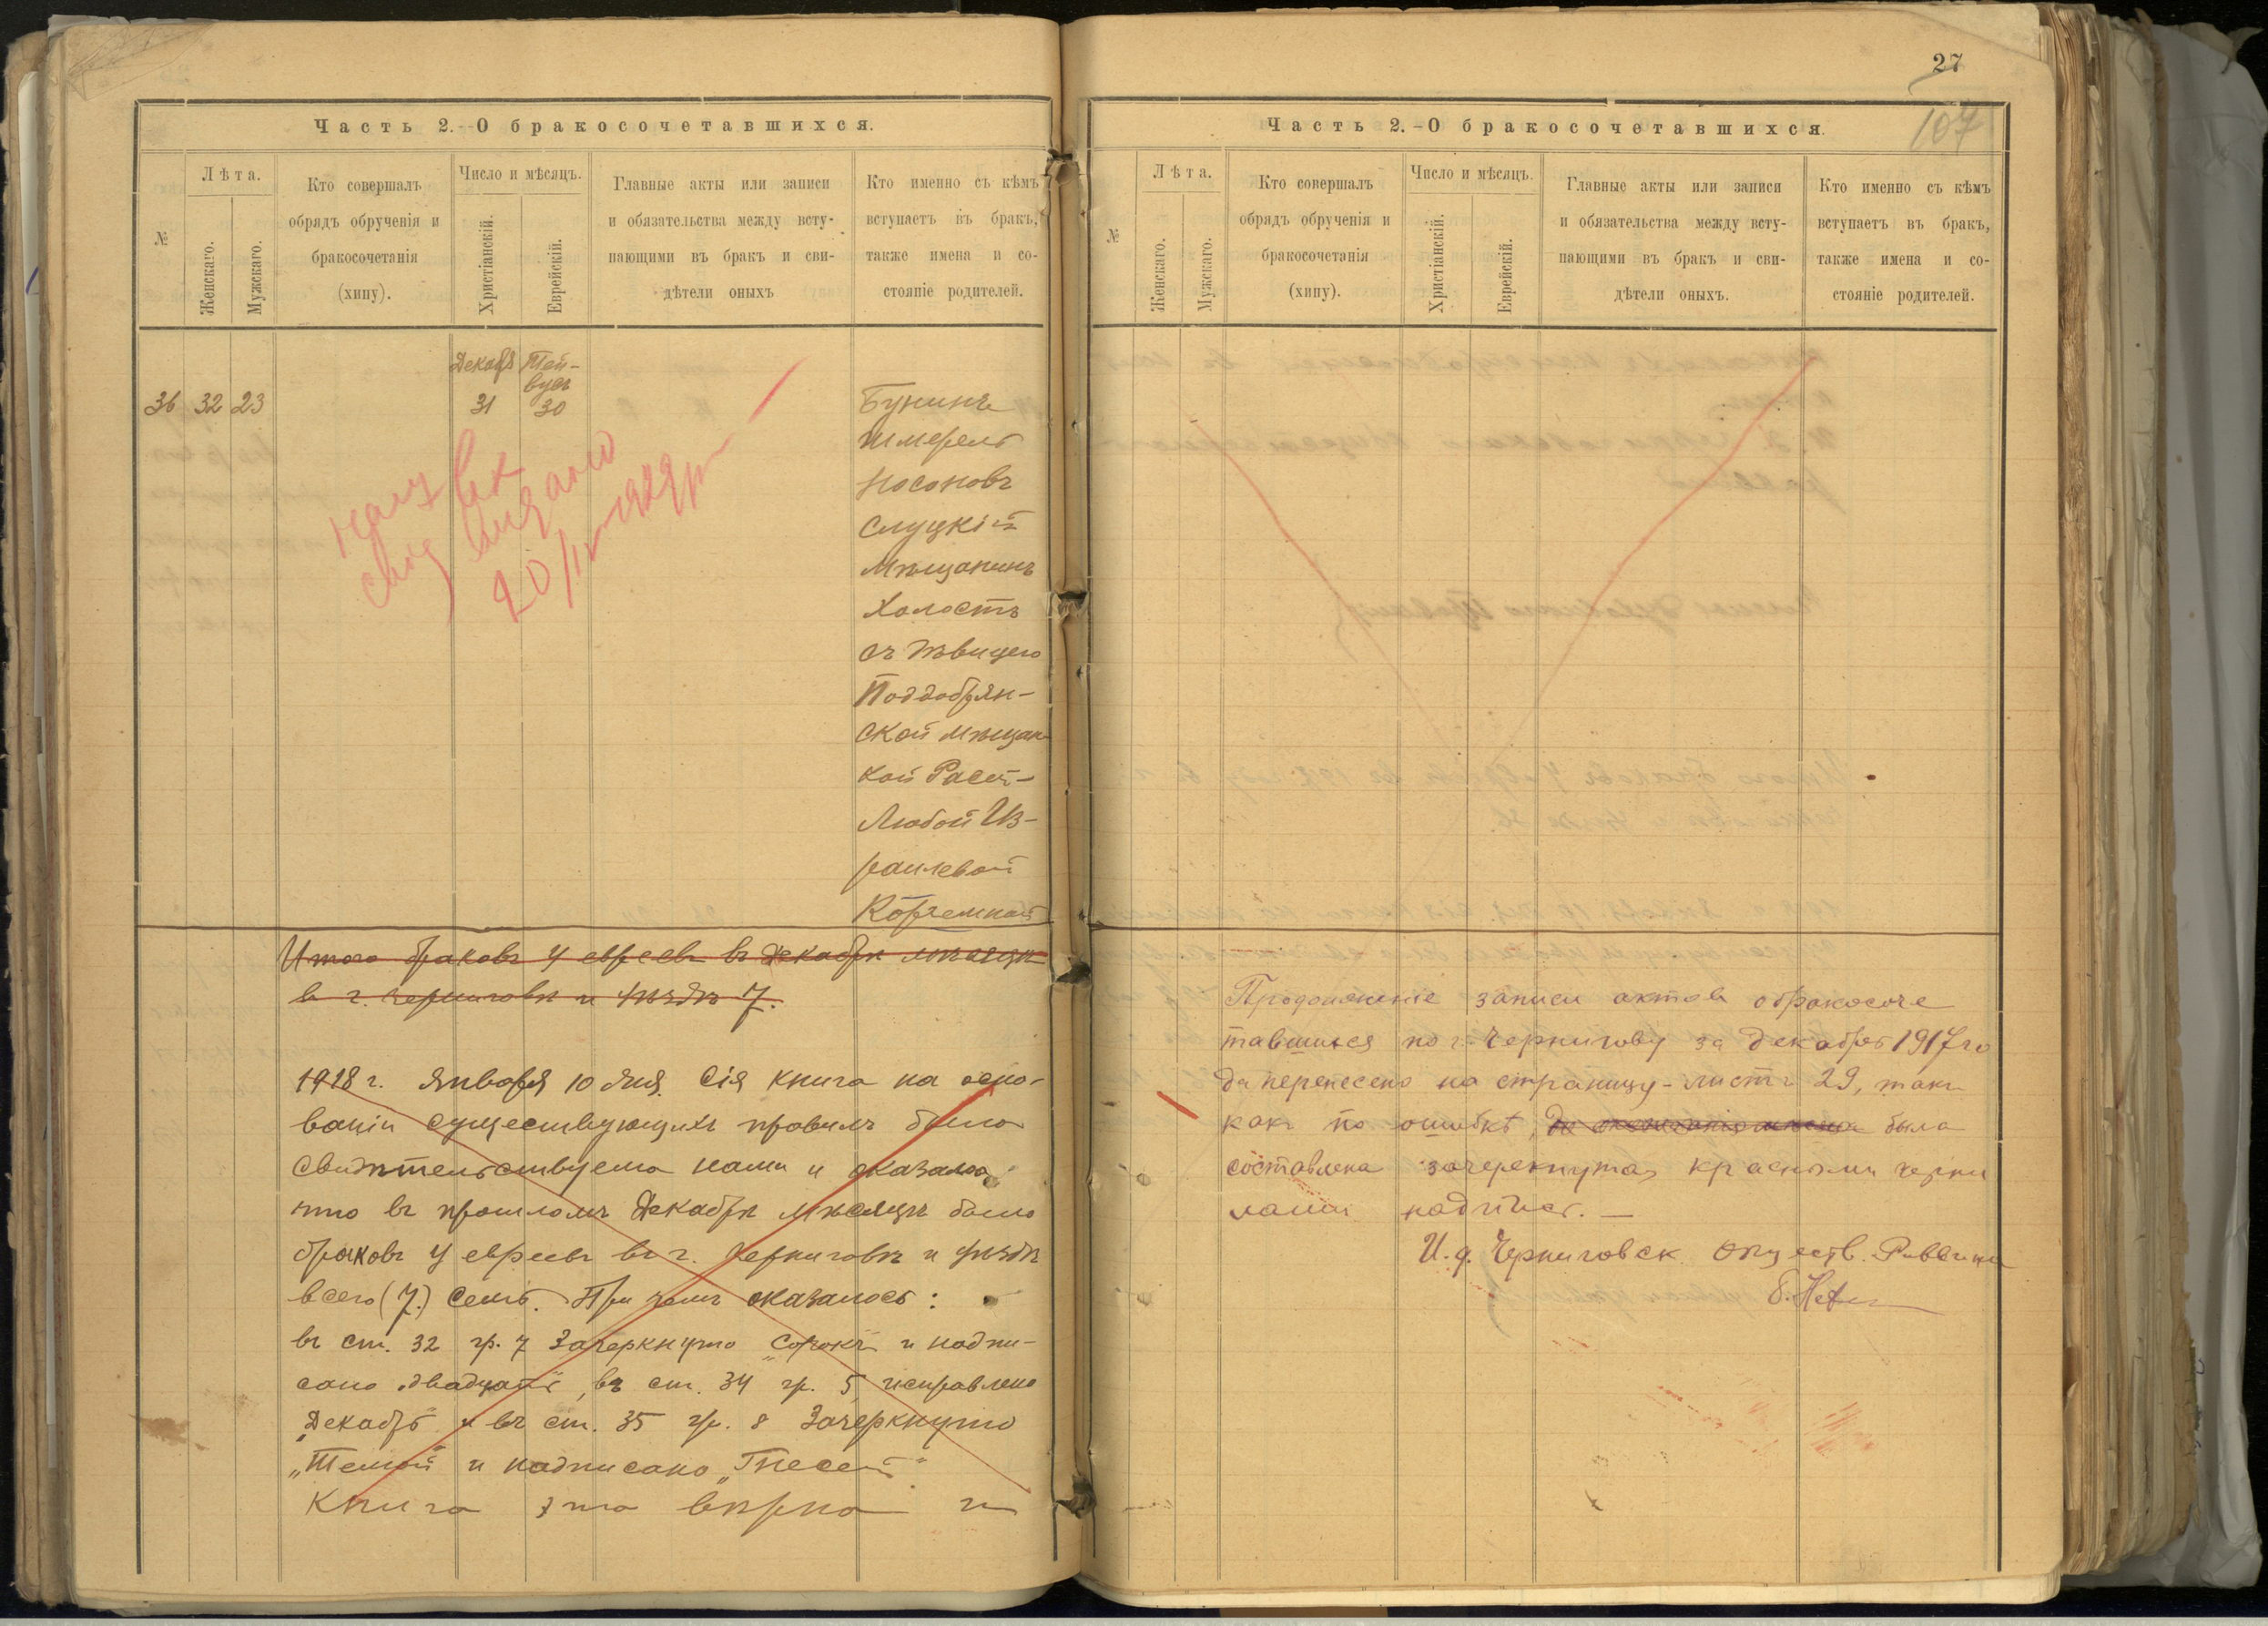 Часть 2.--О бракосочетавшихся.
№
Лѣта.
Женскаго.
Мужскаго.
Кто совершалъ
обрядъ обрученія и
бракосочетанія
(хипу).
Число и мѣсяцъ.
Христіанскій.
Еврейскій.
Главные акты или записи
и обязательства между всту-
пающими въ бракъ и сви-
дѣтели оныхъ
Кто именно съ кѣмъ
вступаетъ въ бракъ,
также имена и со-
стояніе родителей.
Декабр Тей-
вусъ
36 32 23 31 30
Бунинъ
Шмерель
Носоновъ
Слуцкій
Мѣщанинъ
Холостъ
съ дѣвицею
Поддобрян-
ской мѣщан
кой Расей-
Любой Из-
раилевой
Корчемной
выдано
20/II 1929 г
Итого браковъ у евреевъ въ Декабрѣ мѣсяцѣ
в г. Черниговѣ и уѣздѣ 7.
1918 г. Января 10 дня. Сія книга на осно-
ваніи существующихъ правилъ была
свидѣтельствуема нами и оказалось
что въ прошломъ Декабрѣ мѣсяцѣ было
браковъ у евреевъ въ г. Черниговѣ и уѣздѣ
всего (7.) семь. При чемъ оказалось:
въ ст. 32 гр. 7 Зачеркнуто „сорокъ и надпи-
сано „двадцать", въ ст. 34 гр. 5 исправлено
„Декабрь" и въ ст. 35 гр. 8 Зачеркнуто
„Темой" и надписано „Песей"
Книга эта вѣрна и
27
107
Часть 2.-О бракосочетавшихся.
№
Лѣта.
Женскаго.
Мужскаго.
Кто совершалъ
обрядъ обрученія и
бракосочетанія
(хипу).
Число и мѣсяцъ.
Христіанскій.
Еврейскій.
Главные акты или записи
и обязательства между всту-
пающими въ бракъ и сви-
дѣтели оныхъ.
Кто именно съ кѣмъ
вступаетъ въ бракъ,
также имена и со-
стояніе родителей.
Продолженіе записи актов обракосоче
тавшихся по г. Чернигову за декабрь 1917 го
да перенесено на страницу-листъ 29, такъ
какъ по ошибкѣ, была
составлена зачеркнутая красными черни
лами надпись. —
И. д. Черниговск. Обществ. Раввина